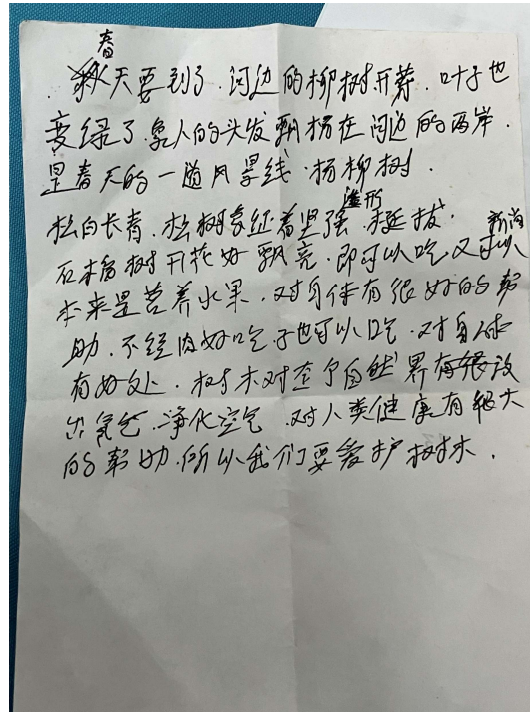 春天要到了.河边的柳树开芽.叶子也
变绿了.象人的头发飘杨在河边的两岸.
是春天的一道风景线.杨柳树.
松白长青.松树象征着坚强.挺拔.
石榴树开花好飘亮.即可以吃又可以
本来是营养水果.对身体有很好的帮
助.不经肉好吃子也可以吃.对身体
有好处.树木对整个自然界有
出氧气.净化空气.对人类健康有很大
的帮助.所以我们要爱护树木.